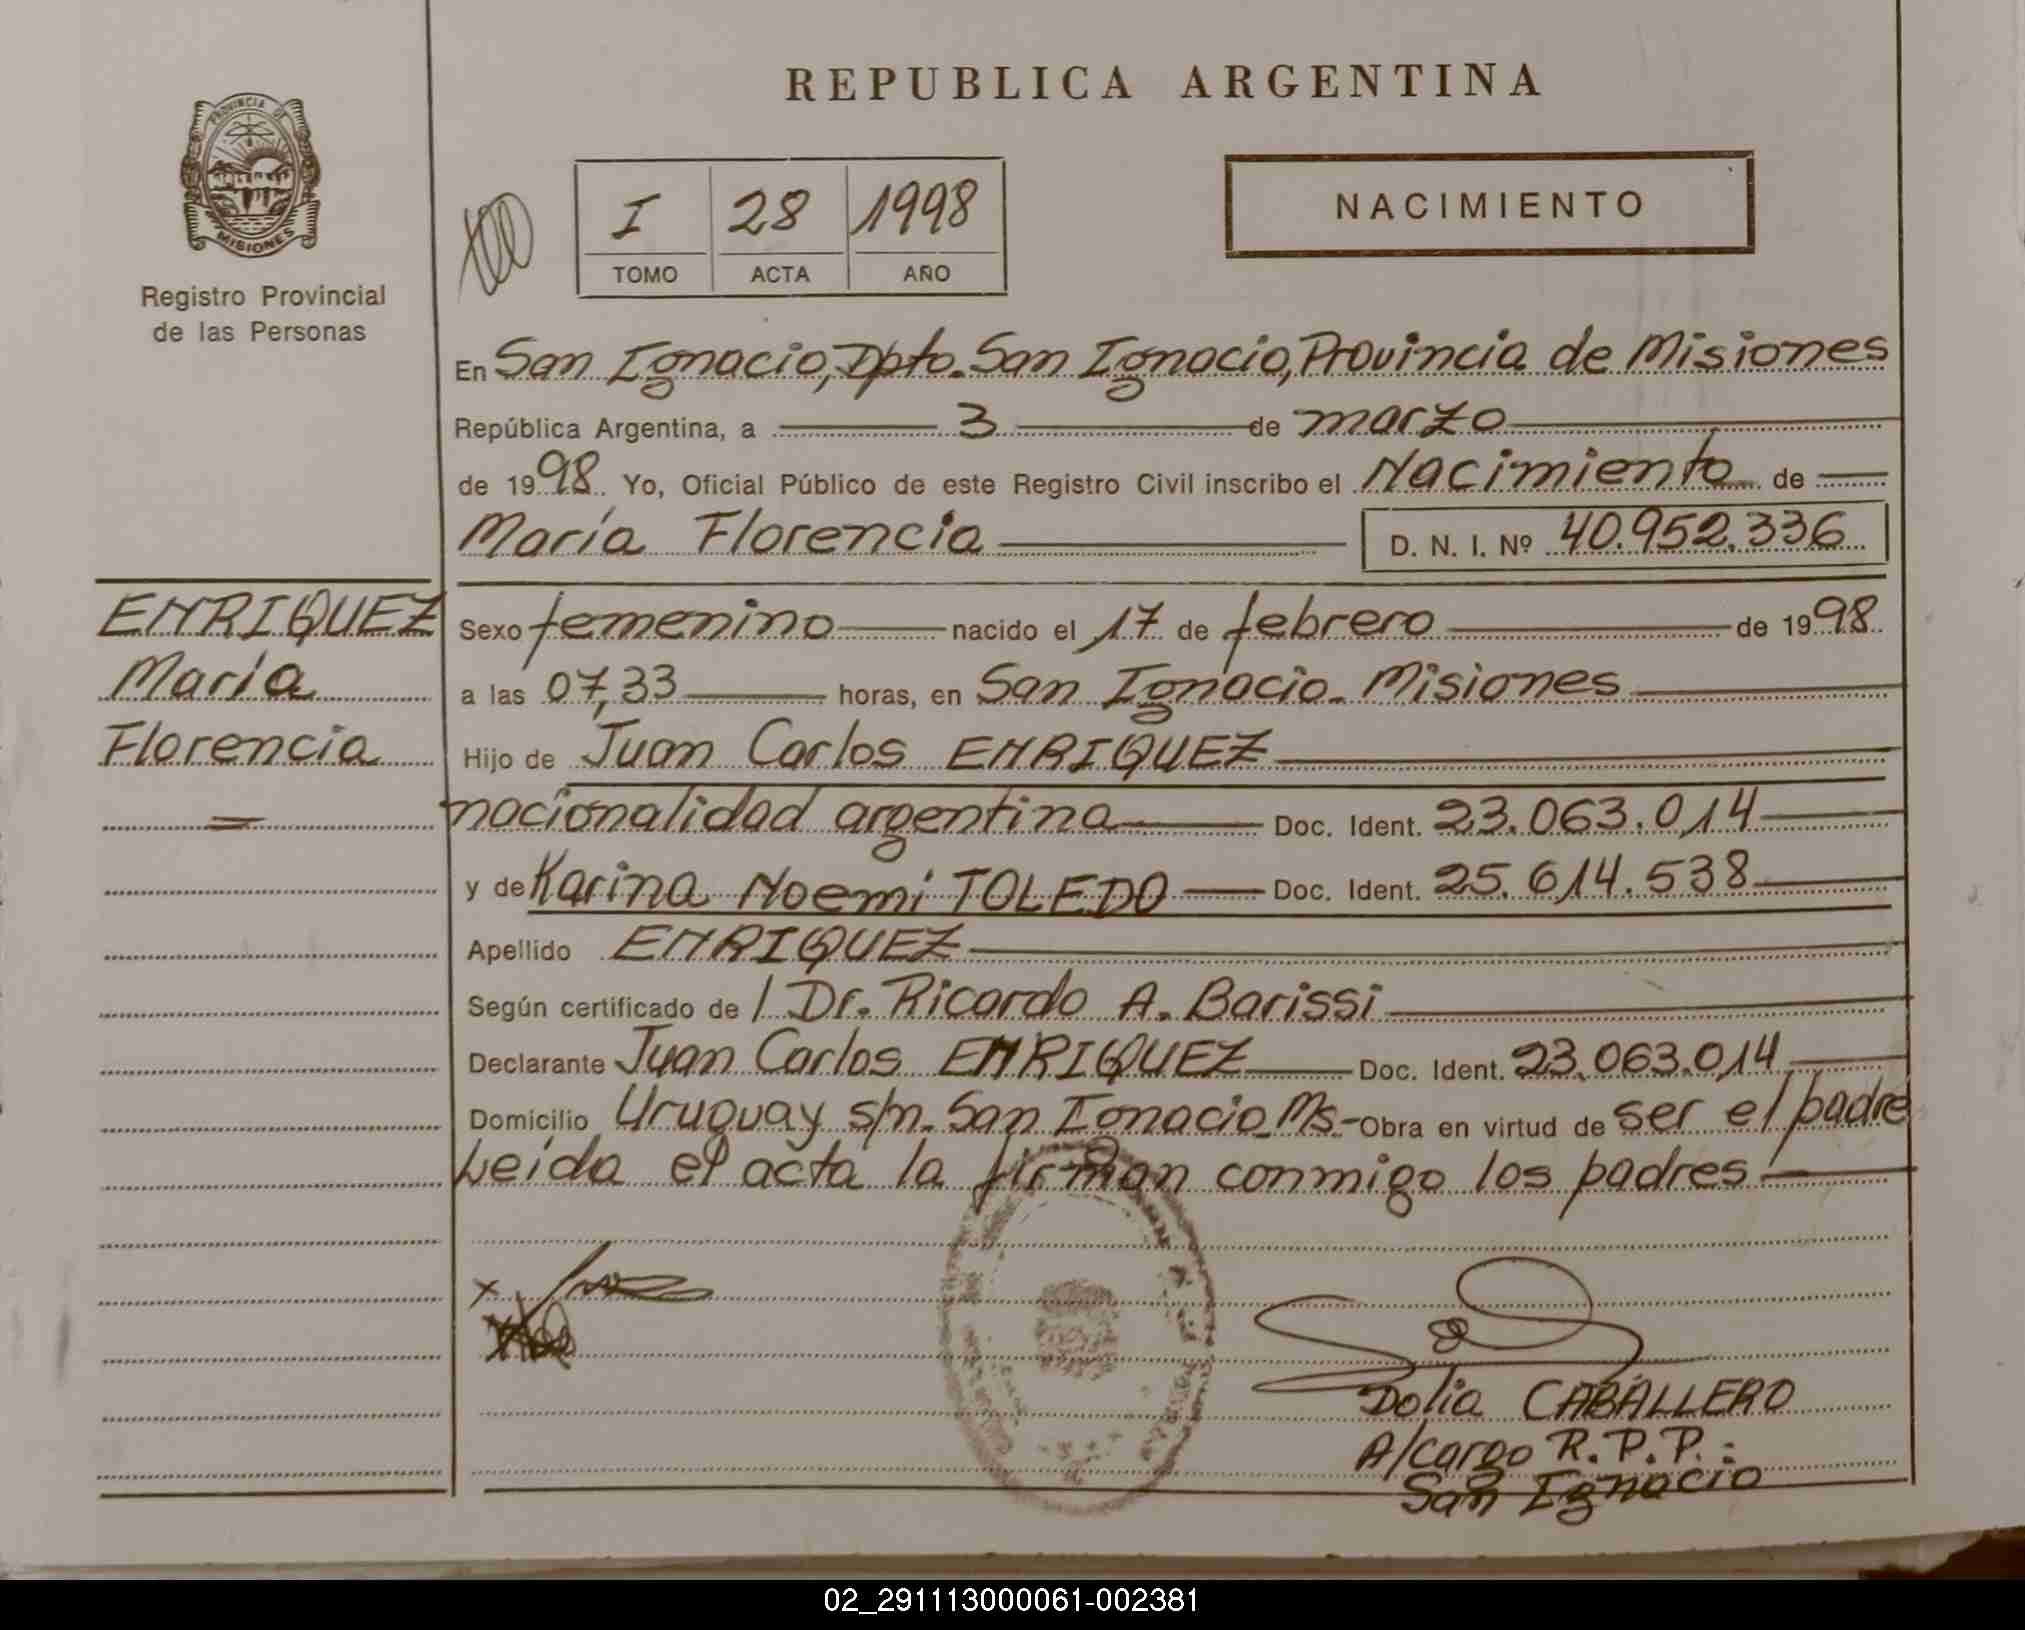 REPUBLICA ARGENTINA
PROVINCIA DE
MISIONES
Registro Provincial
de las Personas
I 28 1998
TOMO ACTA AÑO
NACIMIENTO
En San Ignacio, Dpto. San Ignacio, Provincia de Misiones
República Argentina, a 3 de marzo
de 1998. Yo, Oficial Público de este Registro Civil inscribo el Nacimiento de
María Florencia D. N. I. Nº 40.952.336
ENRIQUEZ
María
Florencia
=
Sexo femenino nacido el 17 de febrero de 1998
a las 07,33 horas, en San Ignacio - Misiones
Hijo de Juan Carlos ENRIQUEZ
nacionalidad argentina Doc. Ident. 23.063.014
y de Karina Noemi TOLEDO Doc. Ident. 25.614.538
Apellido ENRIQUEZ
Según certificado de / Dr. Ricardo A. Barissi
Declarante Juan Carlos ENRIQUEZ Doc. Ident. 23.063.014
Domicilio Uruguay s/n. San Ignacio Ms.- Obra en virtud de ser el padre
Leida el acta la firman conmigo los padres
Dolia CABALLERO
A/cargo R.P.P.:
San Ignacio
02_291113000061-002381